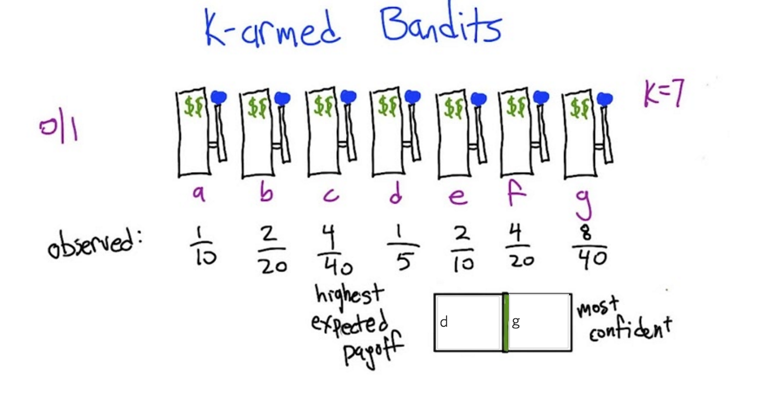 K-armed Bandits
0/1
$$ $$ $$ $$ $$ $$ $$
K=7
a b c d e f g
observed: 1/10 2/20 4/40 1/5 2/10 4/20 8/40
highest
expected
payoff
d g
most
confident